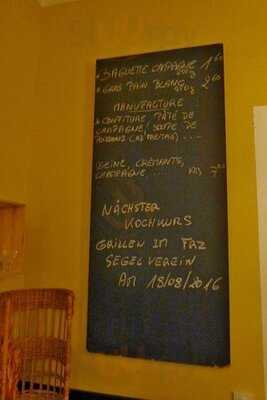 * BAGUETTE CAMPAGNE 1.60
* GROS PAIN BLANC 2.60
MANUFACTURE
* CONFITURE PÂTÉ DE
CAMPAGNE, SOUPE DE
POISSONS
WEINE, CREMANTS,
CAMPAGNE ....
NÄCHSTER
KOCHKURS
GRILLEN IM FAZ
SEGELVEREIN
AM 18/08/2016